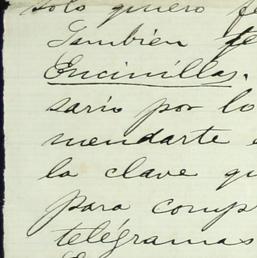 solo quiero fe
También te
Encinillas.
sario por lo
mendarte e
la clave qu
para comp
telégramas